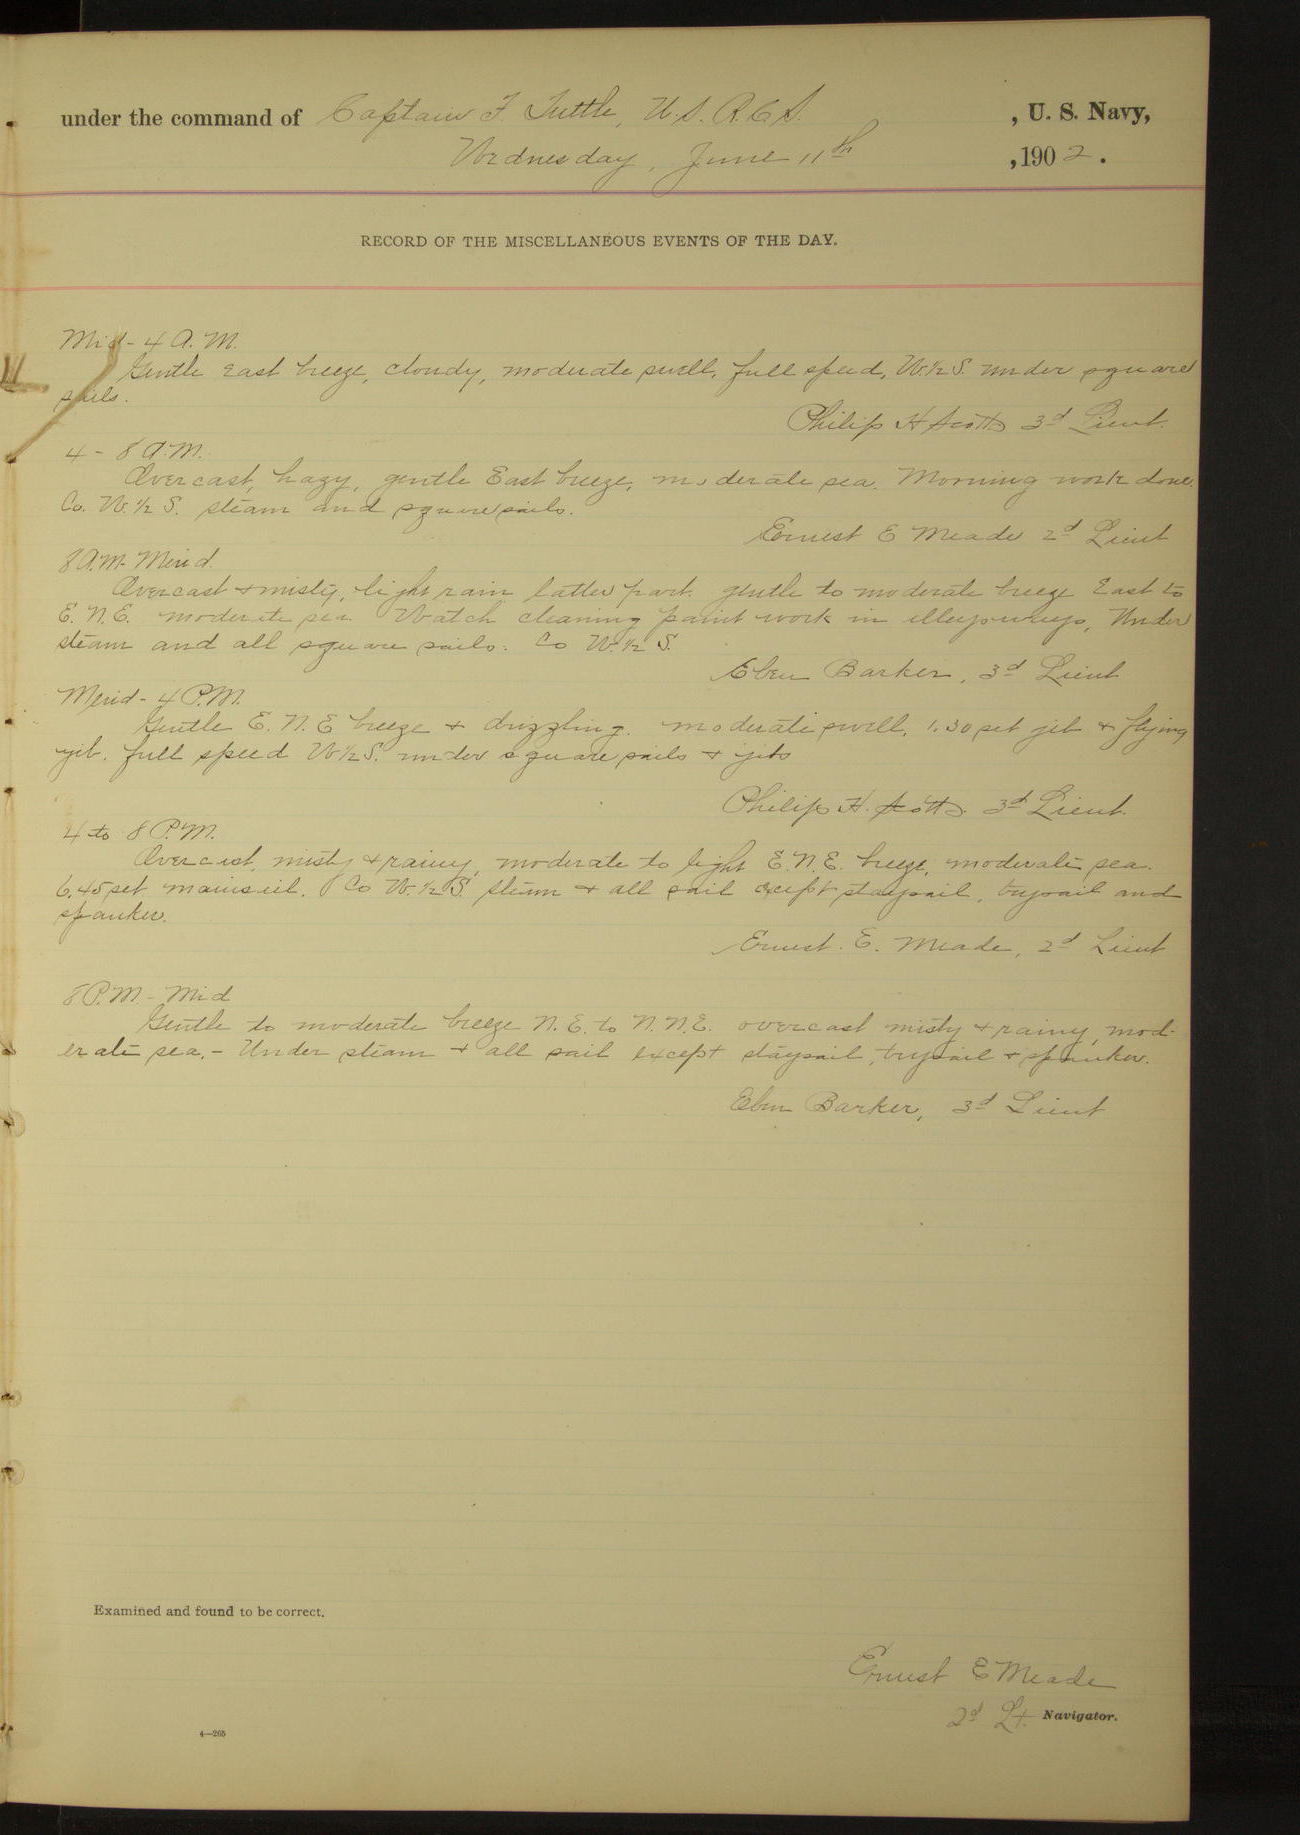 under the command of Captain F. Tuttle, U.S.R.C.S. , U. S. Navy,
Wednesday, June 11th , 1902.
RECORD OF THE MISCELLANEOUS EVENTS OF THE DAY.
Mid - 4 A.M.
Gentle East breeze, cloudy, moderate swell, full speed, W.½S. under square
sails.
Philip H Scott 3d Lieut.
4 - 8 A.M.
Overcast, hazy, gentle East breeze, moderate sea. Morning work done.
Co. W.½ S. steam and square sails.
Ernest E Meade 2d Lieut
8 A.M. Merid.
Overcast + misty, light rain latter part. gentle to moderate breeze East to
E.N.E. moderate sea Watch cleaning paint work in alleyways, Under
steam and all square sails. Co W.½ S.
Eben Barker, 3d Lieut
Merid - 4 P.M.
Gentle E.N.E breeze + drizzling. moderate swell, 1.30 set jib + flying
jib. full speed W½S. under square sails + jibs
Philip H. Scott 3d Lieut.
4 to 8 P.M.
Overcast, misty + rainy, moderate to light E.N.E. breeze, moderate sea.
6.45 set mainsail. Co W.½ S. steam + all sail except staysail, trysail and
spanker.
Ernest. E. Meade, 2d Lieut
8 P.M. - Mid
Gentle to moderate breeze N.E. to N.N.E. overcast misty + rainy, mod-
erate sea. - Under steam + all sail except staysail, trysail + spanker.
Eben Barker, 3d Lieut
Examined and found to be correct.
Ernest E Meade
2d Lt. Navigator.
4—265